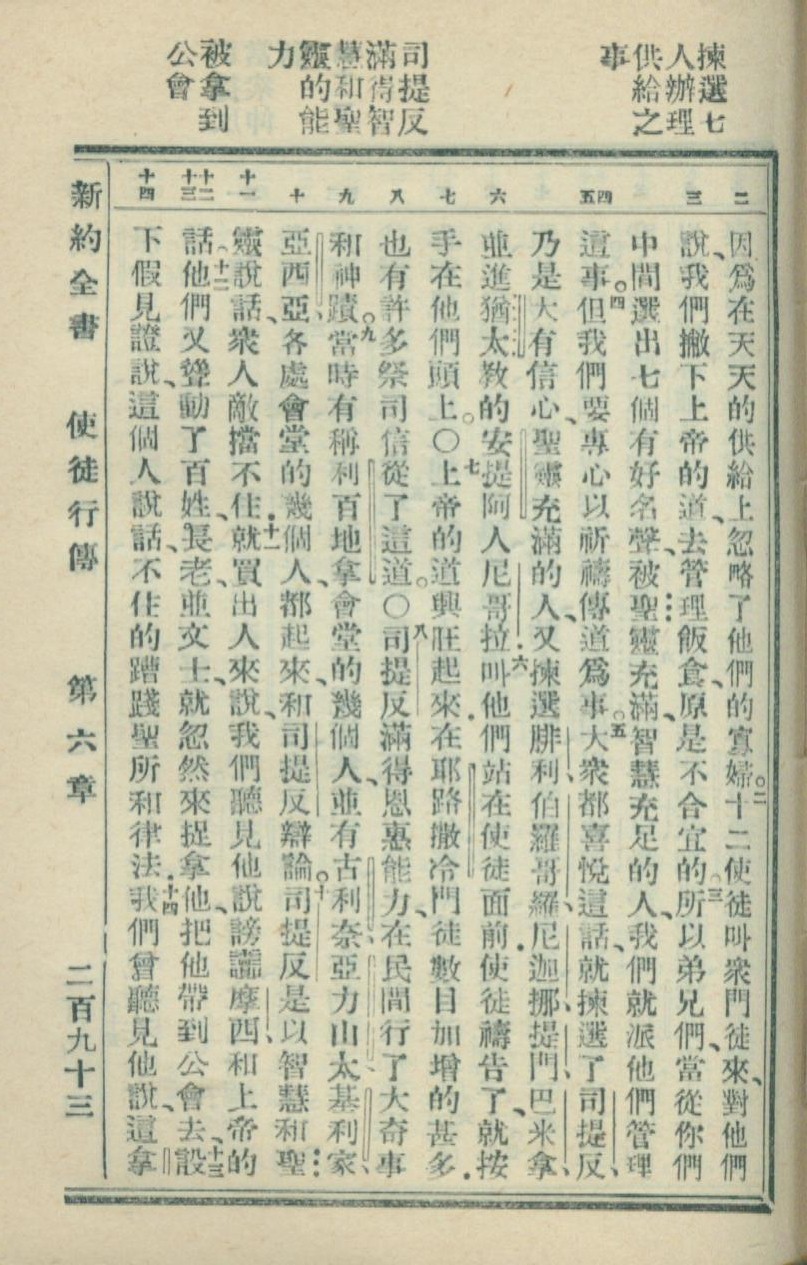 揀選七
人辦理
供給之
事
司提反
滿得智
慧和聖
靈的能
力
被拿到
公會
二
三
四
五
六
七
八
九
十
十一
十二
十三
十四
因爲在天天的供給上忽略了他們的寡婦。二十二使徒叫衆門徒來、對他們
說、我們撇下上帝的道、去管理飯食、原是不合宜的。三所以弟兄們、當從你們
中間選出七個有好名聲、被聖靈充滿、智慧充足的人、我們就派他們管理
這事。四但我們要專心以祈禱傳道爲事。五大衆都喜悅這話、就揀選了司提反、
乃是大有信心、聖靈充滿的人、又揀選腓利、伯羅哥羅、尼迦挪、提門、巴米拿、
並進猶太教的安提阿人尼哥拉。六叫他們站在使徒面前、使徒禱告了、就按
手在他們頭上。○七上帝的道興旺起來、在耶路撒冷門徒數目加增的甚多、
也有許多祭司信從了這道。○八司提反滿得恩惠能力、在民間行了大奇事
和神蹟。九當時有稱利百地拿會堂的幾個人、並有古利奈、亞力山太、基利家、
亞西亞、各處會堂的幾個人、都起來、和司提反辯論。十司提反是以智慧和聖
靈說話、衆人敵擋不住。十一就買出人來說、我們聽見他說謗讟摩西和上帝的
話。十二他們又聳動了百姓、長老、並文士、就忽然來捉拿他、把他帶到公會去、十三設
下假見證說、這個人說話、不住的蹧踐聖所和律法。十四我們曾聽見他說、這拿
新約全書　使徒行傳　第六章　二百九十三